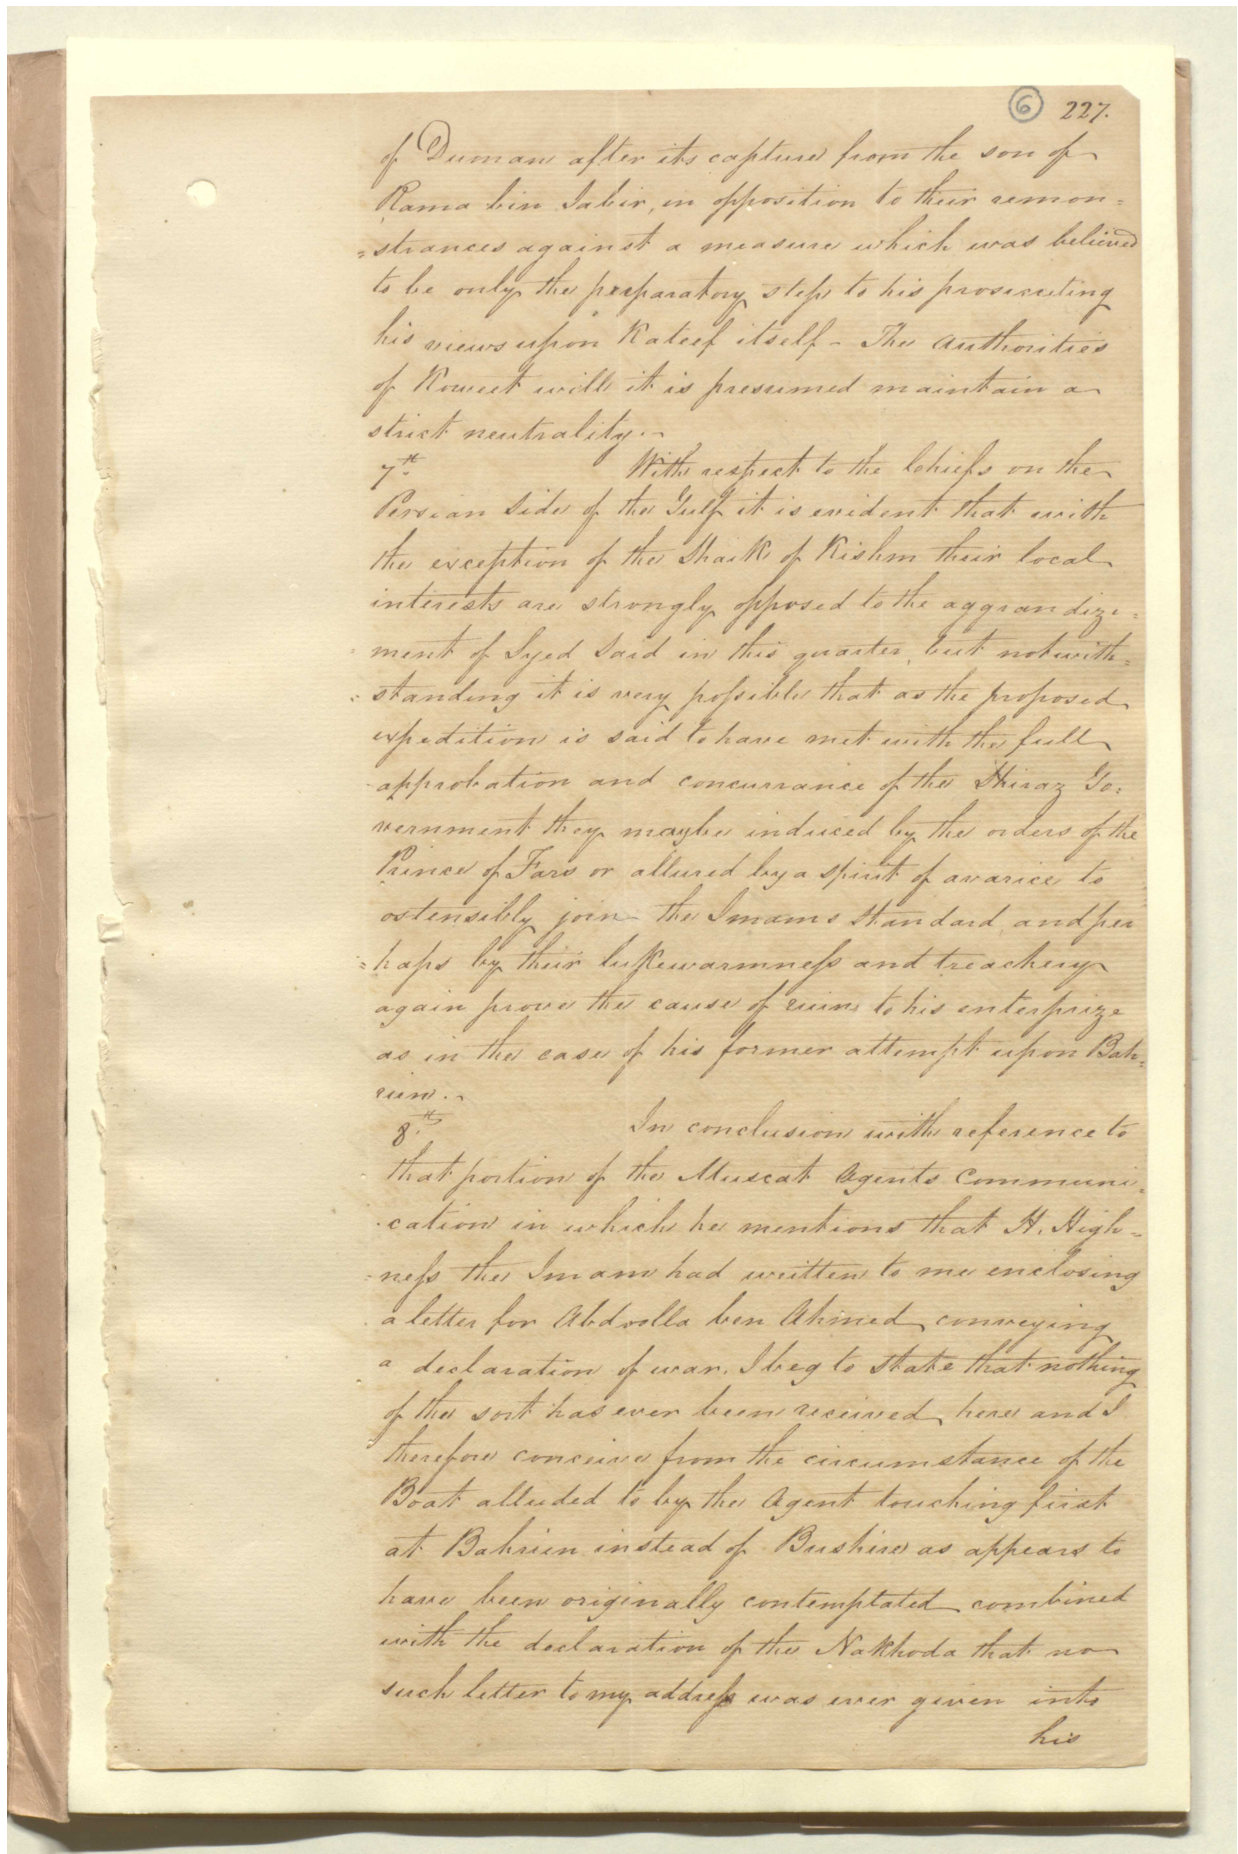 6 227.
of Duman after its capture from the son of
Rama bin Jabir, in opposition to their remon=
=strances against a measure which was believed
to be only the preparatory step to his prosecuting
his views upon Kateef itself - The Authorities
of Koweet will it is presumed maintain a
strict neutrality.-
7th. With respect to the Chiefs on the
Persian Side of the Gulf it is evident that with
the exception of the Shaik of Kishm their local
interests are strongly opposed to the aggrandize=
ment of Syed Said in this quarter, but notwith=
=standing it is very possible that as the proposed
expedition is said to have met with the full
approbation and concurrance of the Shiraz Go=
vernment they may be induced by the orders of the
Prince of Fars or allured by a spirit of avarice to
ostensibly join the Imams Standard, and per
=haps by their lukewarmness and treachery
again prove the cause of ruin to his enterprize
as in the case of his former attempt upon Bah=
rein.-
8th. In conclusion with reference to
that portion of the Muscat Agents Communi=
cation in which he mentions that H. High=
=ness the Imam had written to me enclosing
a letter for Abdoolla ben Ahmed conveying
a declaration of war, I beg to state that nothing
of the sort has ever been received here and I
therefore conceive from the circumstance of the
Boat alluded to by the Agent touching first
at Bahrein instead of Bushire as appears to
have been originally contemplated combined
with the declaration of the Nakhoda that no
such letter to my address was ever given into
his